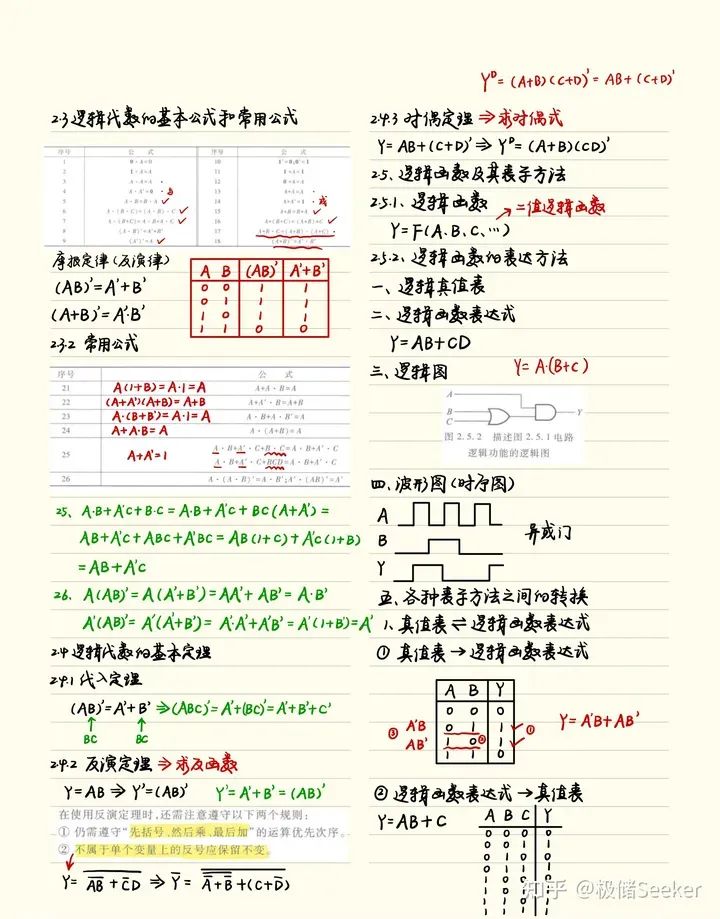 Yᴰ = (A+B)(C+D)' = AB+(C+D)'
2.3 逻辑代数的基本公式和常用公式
序号 公式 序号 公式
1 0·A=0 10 1'=0;0'=1
2 1·A=A 11 1+A=1
3 A·A=A 12 0+A=A
4 A·A'=0 · 与 13 A+A=A ·
5 A·B=B·A ✓ 14 A+A'=1 · 或
6 A·(B·C)=(A·B)·C ✓ 15 A+B=B+A ✓
7 A·(B+C)=A·B+A·C ✓ 16 A+(B+C)=(A+B)+C ✓
8 (A·B)'=A'+B' 17 A+B·C=(A+B)·(A+C) ✓
9 (A')'=A ✓ 18 (A+B)'=A'·B'
摩根定律(反演律)
(AB)'=A'+B'
(A+B)'=A'·B'
A B (AB)' A'+B'
0 0 1 1
0 1 1 1
1 0 1 1
1 1 0 0
2.3.2 常用公式
序号 公式
21 A(1+B)=A·1=A A+A·B=A
22 (A+A')(A+B)=A+B A+A'·B=A+B
23 A·(B+B')=A·1=A A·B+A·B'=A
24 A+A·B=A A·(A+B)=A
25 A+A'=1 A·B+A'·C+B·C=A·B+A'·C
A·B+A'·C+BCD=A·B+A'·C
26 A·(A·B)'=A·B';A'·(AB)'=A'
25、A·B+A'C+B·C=A·B+A'C+BC(A+A')=
AB+A'C+ABC+A'BC=AB(1+C)+A'C(1+B)
=AB+A'C
26、A(AB)'=A(A'+B')=AA'+AB'=A·B'
A'(AB)'=A'(A'+B')=A'·A'+A'B'=A'(1+B')=A'
2.4 逻辑代数的基本定理
2.4.1 代入定理
(AB)'=A'+B' ⇒(ABC)'=A'+(BC)'=A'+B'+C'
↑ ↑
BC BC
2.4.2 反演定理 ⇒求反函数
Y=AB ⇒ Y'=(AB)' Y'=A'+B'=(AB)'
在使用反演定理时,还需注意遵守以下两个规则:
① 仍需遵守“先括号、然后乘、最后加”的运算优先次序。
② 不属于单个变量上的反号应保留不变。
2.4.3 对偶定理 ⇒求对偶式
Y=AB+(C+D)' ⇒ Yᴰ=(A+B)(CD)'
2.5、逻辑函数及其表示方法
2.5.1、逻辑函数 → 二值逻辑函数
Y=F(A、B、C、…)
2.5.2、逻辑函数的表达方法
一、逻辑真值表
二、逻辑函数表达式
Y=AB+CD
三、逻辑图 Y=A·(B+C)
A
B
C
Y
图 2.5.2 描述图 2.5.1 电路
逻辑功能的逻辑图
四、波形图(时序图)
A
B 异或门
Y
五、各种表示方法之间的转换
1、真值表 ⇌ 逻辑函数表达式
① 真值表 → 逻辑函数表达式
A B Y
0 0 0
③ A'B 0 1 1 ① Y=A'B+AB'
AB' 1 0 ② 1
1 1 0
② 逻辑函数表达式 → 真值表
Y=AB+C
A B C Y
0 0 0
0 0 1
0 1 0
0 1 1
知乎 @极储Seeker